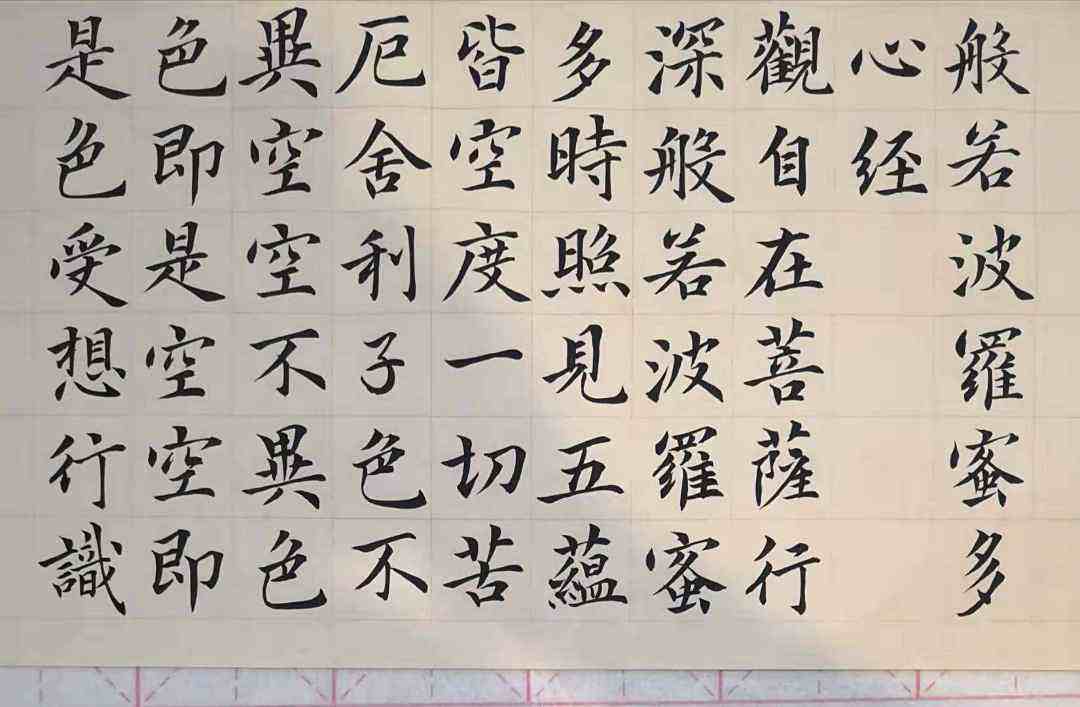 般若波羅蜜多
心経
觀自在菩薩行
深般若波羅蜜
多時照見五蘊
皆空度一切苦
厄舍利子色不
異空空不異色
色即是空空即
是色受想行識